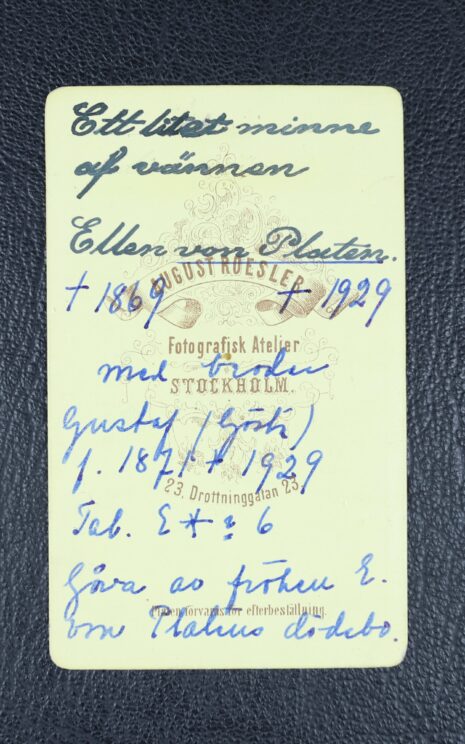 Ett litet minne
af vännen
Ellen von Platen.
AUGUST ROESLER
† 1869 † 1929
Fotografisk Atelier
med broder
STOCKHOLM.
Gustaf (Gösta)
f. 1871 † 1929
23. Drottninggatan 23.
Tab. E 6
Gåva av fröken E.
Plåten förvaras för efterbeställning.
von Platens dödsbo.